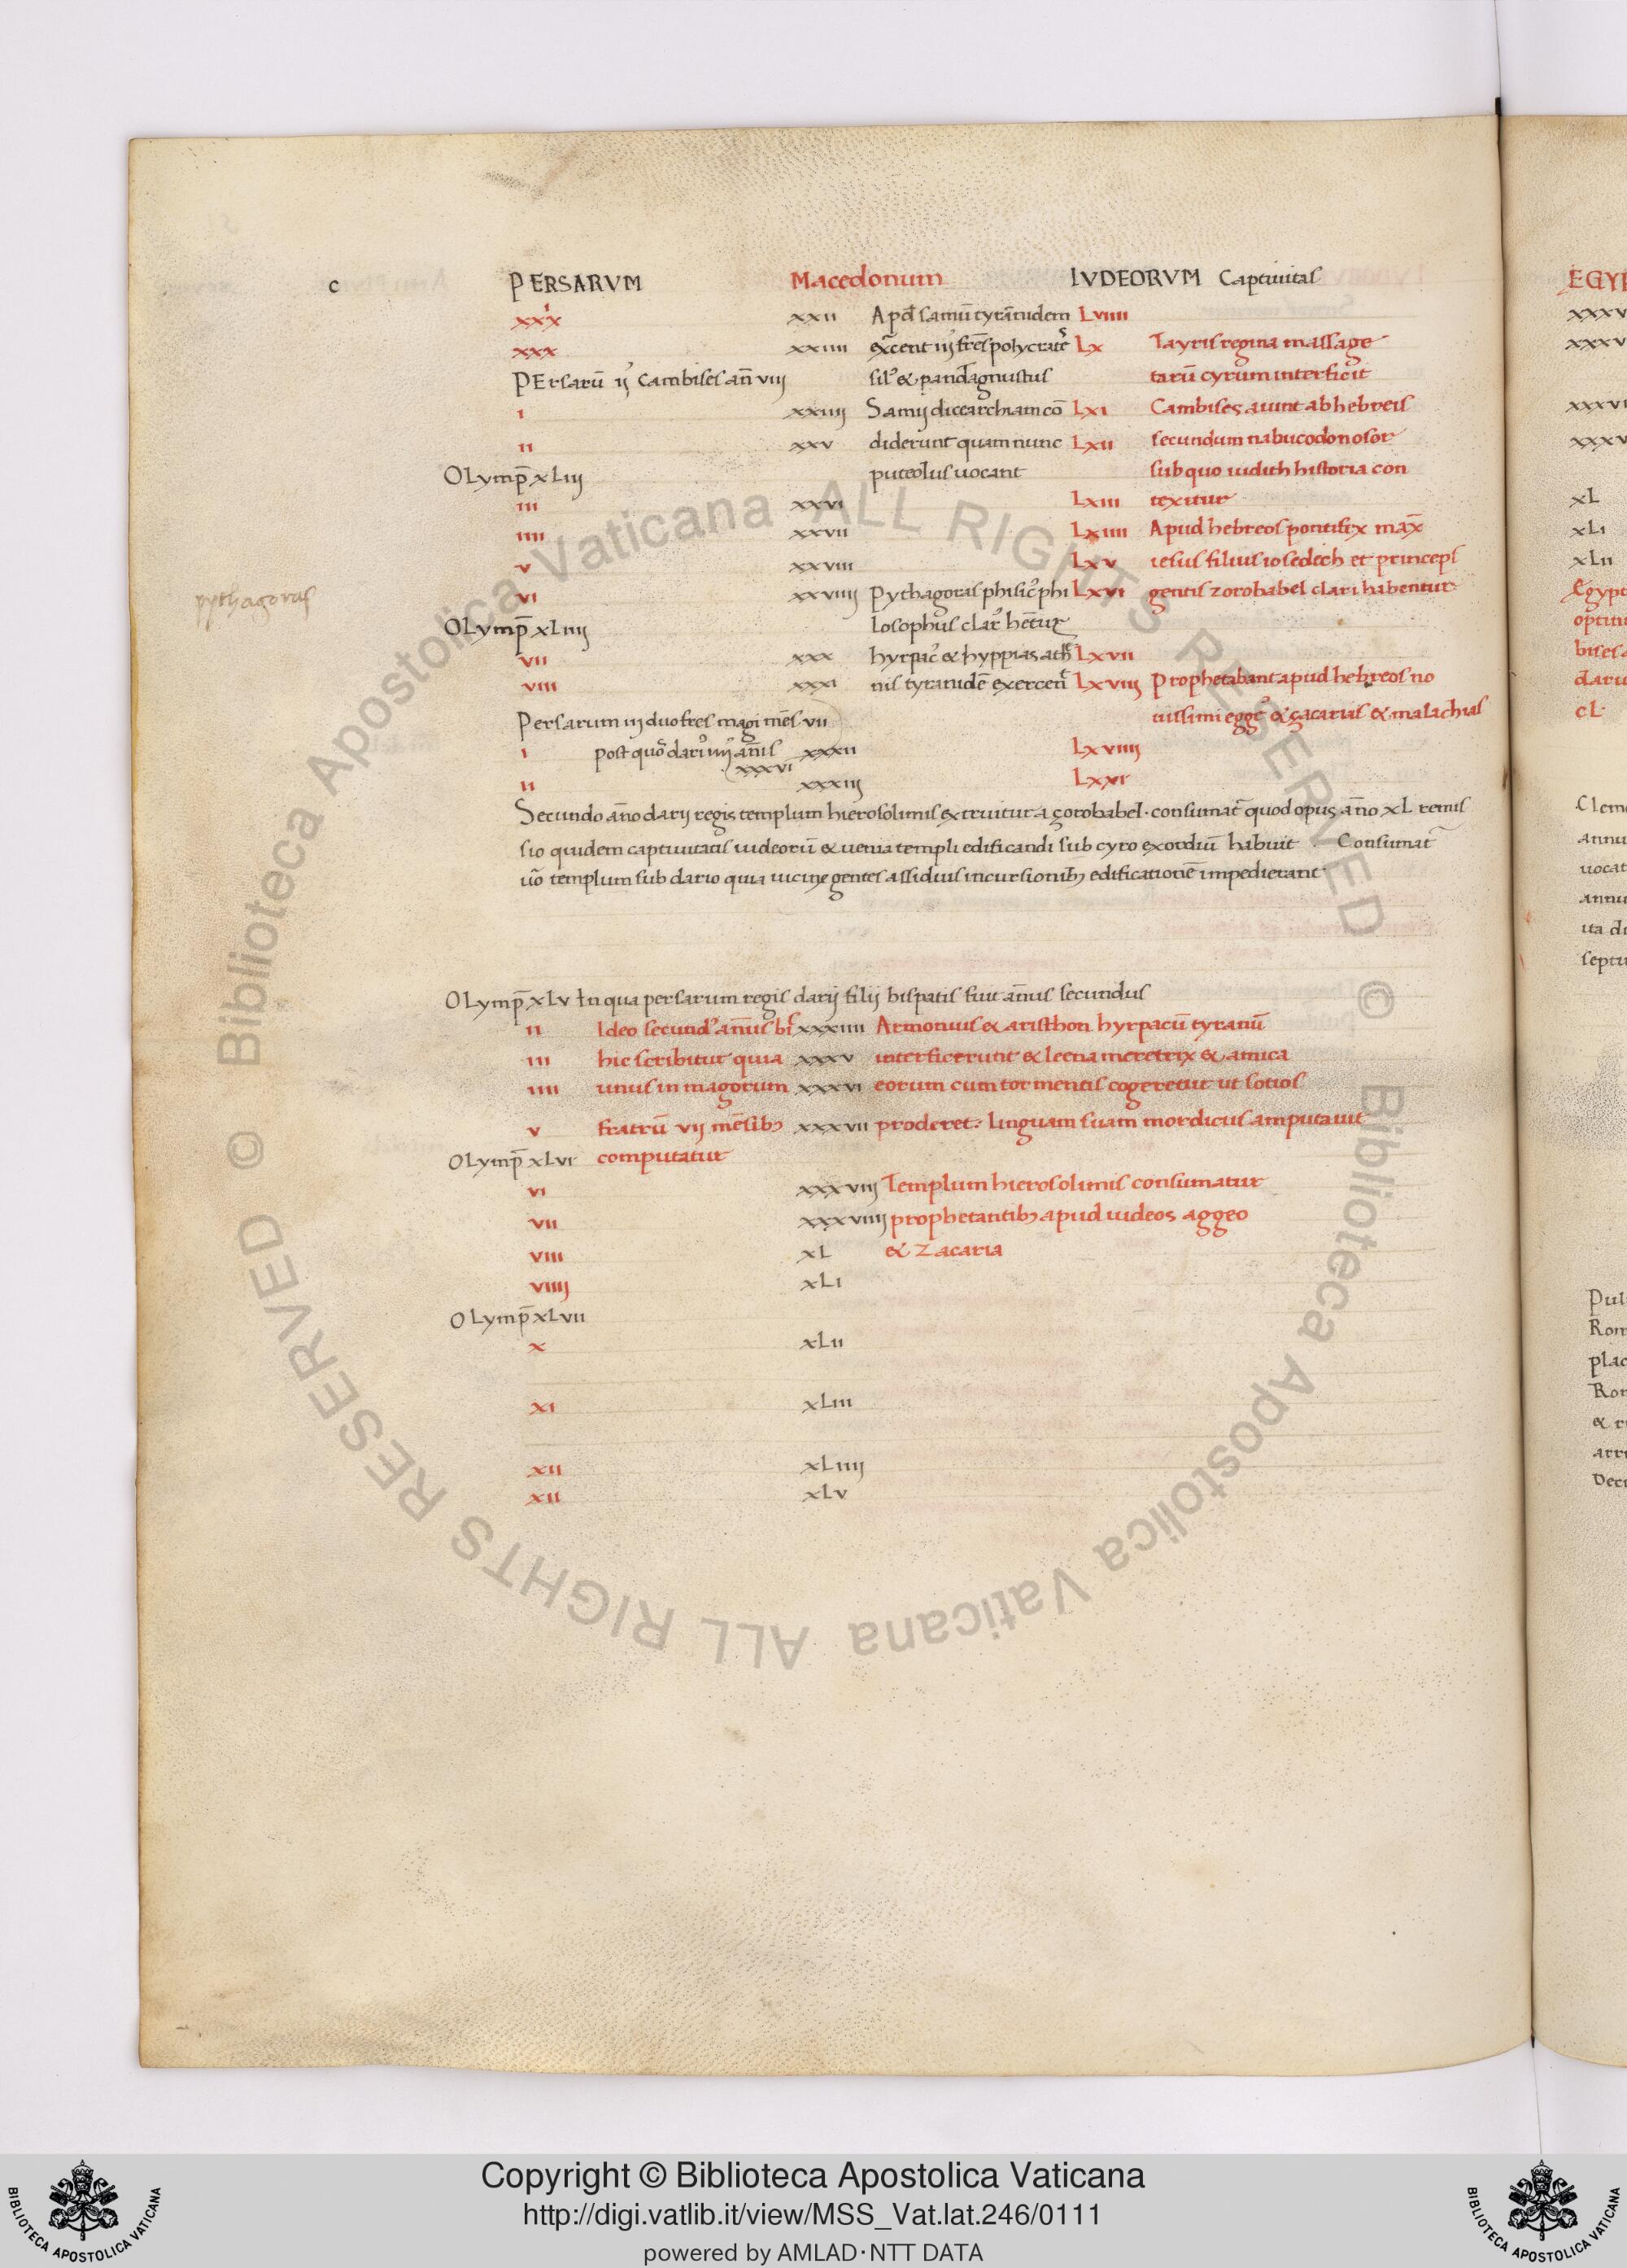 c PERSARVM Macedonum IVDEORVM Captiuitas EGYP
xxix xxii Apd̄ samū tyrānidem Lviiii xxxv
xxx xxiiii exc̄ent iij fr̄es polycrat̄ Lx Tayris regina massage xxxv
PErsarū ij Cambises an̄ viij sil' & pandagnustus tarū cyrum interficit
i xxiiij Samij diccarchiam cō Lxi Cambises aiunt ab hebreis xxxvi
ii xxv diderunt quam nunc Lxii secundum nabucodonosor xxxv
OLymp̄ xLiij puteolus uocant sub quo iudith historia con
iii xxvi Lxiii texitur xL
iiii xxvii Lxiiii Apud hebreos pontifex max̄ xLi
v xxviii Lxv iesus filius iosedech et princeps xLii
pythagoras vi xxviiii Pythagoras phisic' phi Lxvi gentis zorobabel clari habentur Egypt
OLymp̄ xLiiij losophus clar' hētur
vii xxx hyrpac' & hyppias ath̄ Lxvii bises
viii xxxi nis tyranidē exercent Lxviij Prophetabant apud hebreos no dariu
Persarum iij duo fres magi mēs vii uissimi egge' & çacarias & malachias cL
i post quos dari' iiij an̄is xxxvi xxxii Lxviiij
ii xxxiij Lxxi
Secundo an̄o darij regis templum hierosolimis extruitur a çorobabel · consumat̄ quod opus an̄o xL remis Clem
sio quidem captiuitatis iudeorū & uenia templi edificandi sub cyro exordiū habuit · Consumat̄ annu
uō templum sub dario quia uicine gentes assiduis incursionib; edificationē impedierant uocat
OLymp̄ xLv In qua persarum regis darij filij hispatis fuit an̄us secundus
ii Ideo secund' an̄us bis xxxiiii Armonius & aristhon hyrpacū tyranū
iii hic scribitur quia xxxv interficerunt & leena meretrix & amica
iiii unus in magorum xxxvi eorum cum tormentis cogeretur ut sotios
v fratrū vij mēsib; xxxvii proderet: linguam suam mordicus amputauit
OLymp̄ xLvi computatur
vi xxxviij Templum hierosolimis consumatur
vii xxxviiij prophetantib; apud iudeos aggeo
viii xL & zacaria
viiij xLi
OLymp̄ xLvii
x xLii
xi xLiii
xii xLiiij
xii xLv
© Biblioteca Apostolica Vaticana ALL RIGHTS RESERVED © Biblioteca Apostolica Vaticana ALL RIGHTS RESERVED
BIBLIOTECA APOSTOLICA VATICANA
Copyright © Biblioteca Apostolica Vaticana
http://digi.vatlib.it/view/MSS_Vat.lat.246/0111
powered by AMLAD·NTT DATA
BIBLIOTECA APOSTOLICA VATICANA